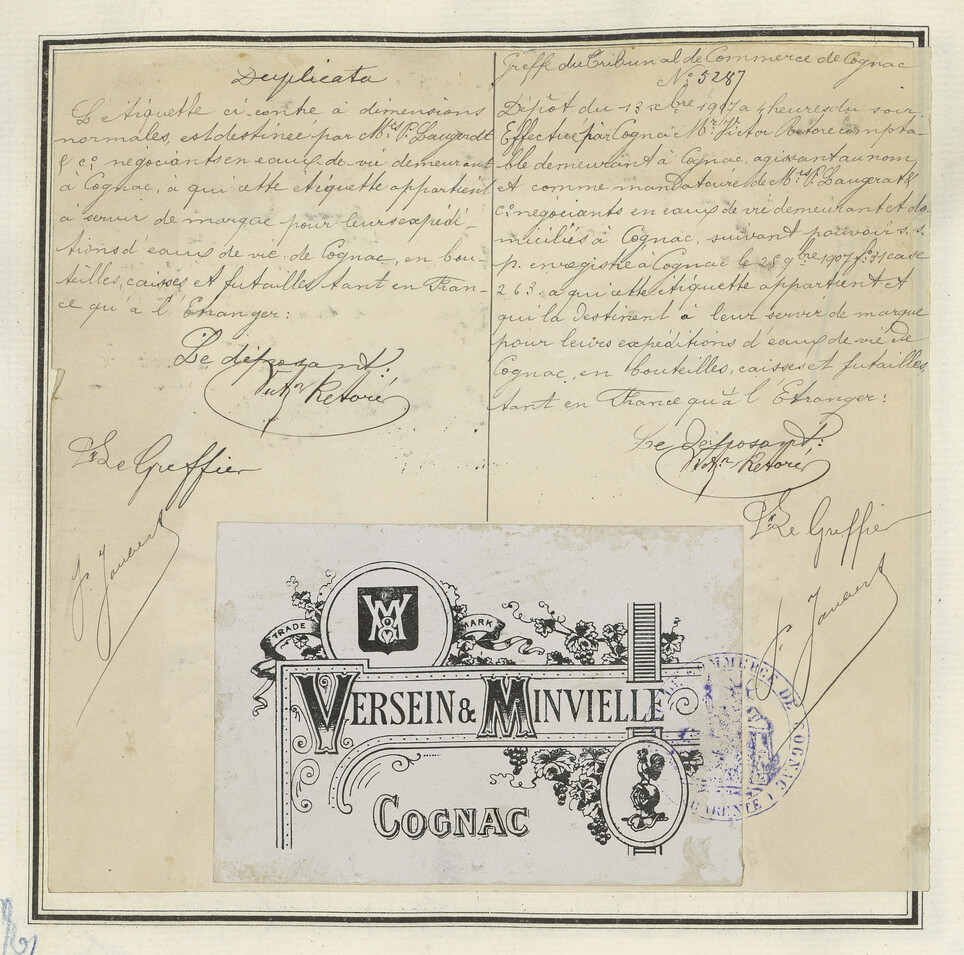 Duplicata
L'étiquette ci-contre à dimensions
normales, est destinée par Mrs P. Laugerat
& Co négociants en eaux de vie demeurant
à Cognac, à qui cette étiquette appartient
à servir de marque pour leurs expédi-
tions d'eaux de vie de Cognac, en bou-
teilles, caisses et futailles tant en Fran-
ce qu'à l'Etranger:
Le déposant:
Vtor Retoré
Pr Le Greffier
J. Jaubert
Greffe du Tribunal de Commerce de Cognac
No 5287
Dépôt du 13 xbre 1907 à 4 heures du soir
Effectué par Cognac Mr Victor Retoré compta-
ble demeurant à Cognac, agissant au nom
et comme mandataire de Mrs P. Laugerat &
Co négociants en eaux de vie demeurant et do-
miciliés à Cognac, suivant pouvoir s. s.
p. enregistré à Cognac le 28 9bre 1907 fo 31 case
263: a qui cette étiquette appartient et
qui la destinent à leur servir de marque
pour leurs expéditions d'eaux de vie de
Cognac, en bouteilles, caisses et futailles,
tant en France qu'à l'Etranger:
Le déposant:
Vtor Retoré
Pr Le Greffier
J. Jaubert
TRADE MARK
VM
VERSEIN & MINVIELLE
COGNAC
COMMERCE DE COGNAC